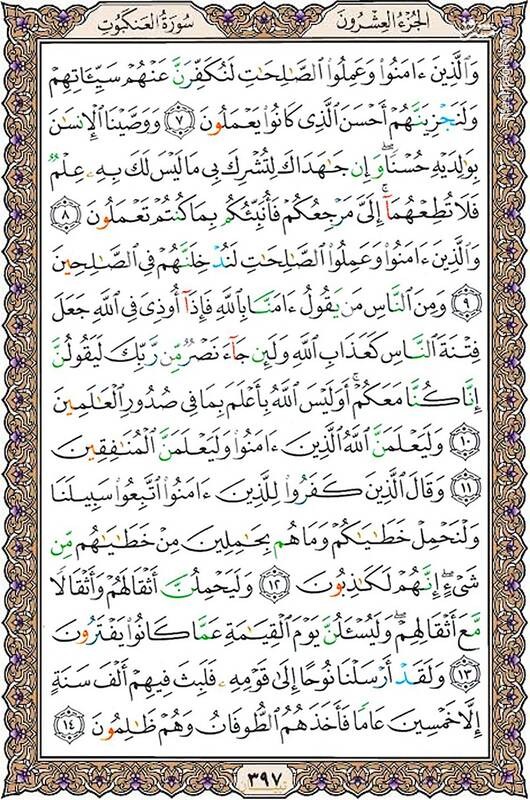 الجُزءُ العِشرُونَ
سُورَةُ العَنكَبُوتِ
وَالَّذِينَ ءَامَنُوا وَعَمِلُوا الصَّالِحَاتِ لَنُكَفِّرَنَّ عَنْهُمْ سَيِّئَاتِهِمْ
وَلَنَجْزِيَنَّهُمْ أَحْسَنَ الَّذِي كَانُوا يَعْمَلُونَ ٧ وَوَصَّيْنَا الْإِنسَانَ
بِوَالِدَيْهِ حُسْنًا ۖ وَإِن جَاهَدَاكَ لِتُشْرِكَ بِي مَا لَيْسَ لَكَ بِهِ عِلْمٌ
فَلَا تُطِعْهُمَا ۚ إِلَيَّ مَرْجِعُكُمْ فَأُنَبِّئُكُم بِمَا كُنتُمْ تَعْمَلُونَ ٨
وَالَّذِينَ ءَامَنُوا وَعَمِلُوا الصَّالِحَاتِ لَنُدْخِلَنَّهُمْ فِي الصَّالِحِينَ
٩ وَمِنَ النَّاسِ مَن يَقُولُ ءَامَنَّا بِاللَّهِ فَإِذَا أُوذِيَ فِي اللَّهِ جَعَلَ
فِتْنَةَ النَّاسِ كَعَذَابِ اللَّهِ وَلَئِن جَاءَ نَصْرٌ مِّن رَّبِّكَ لَيَقُولُنَّ
إِنَّا كُنَّا مَعَكُمْ ۚ أَوَلَيْسَ اللَّهُ بِأَعْلَمَ بِمَا فِي صُدُورِ الْعَالَمِينَ
١٠ وَلَيَعْلَمَنَّ اللَّهُ الَّذِينَ ءَامَنُوا وَلَيَعْلَمَنَّ الْمُنَافِقِينَ
١١ وَقَالَ الَّذِينَ كَفَرُوا لِلَّذِينَ ءَامَنُوا اتَّبِعُوا سَبِيلَنَا
وَلْنَحْمِلْ خَطَايَاكُمْ وَمَا هُم بِحَامِلِينَ مِنْ خَطَايَاهُم مِّن
شَيْءٍ ۖ إِنَّهُمْ لَكَاذِبُونَ ١٢ وَلَيَحْمِلُنَّ أَثْقَالَهُمْ وَأَثْقَالًا
مَّعَ أَثْقَالِهِمْ ۖ وَلَيُسْئَلُنَّ يَوْمَ الْقِيَامَةِ عَمَّا كَانُوا يَفْتَرُونَ
١٣ وَلَقَدْ أَرْسَلْنَا نُوحًا إِلَىٰ قَوْمِهِ فَلَبِثَ فِيهِمْ أَلْفَ سَنَةٍ
إِلَّا خَمْسِينَ عَامًا فَأَخَذَهُمُ الطُّوفَانُ وَهُمْ ظَالِمُونَ ١٤
٣٩٧